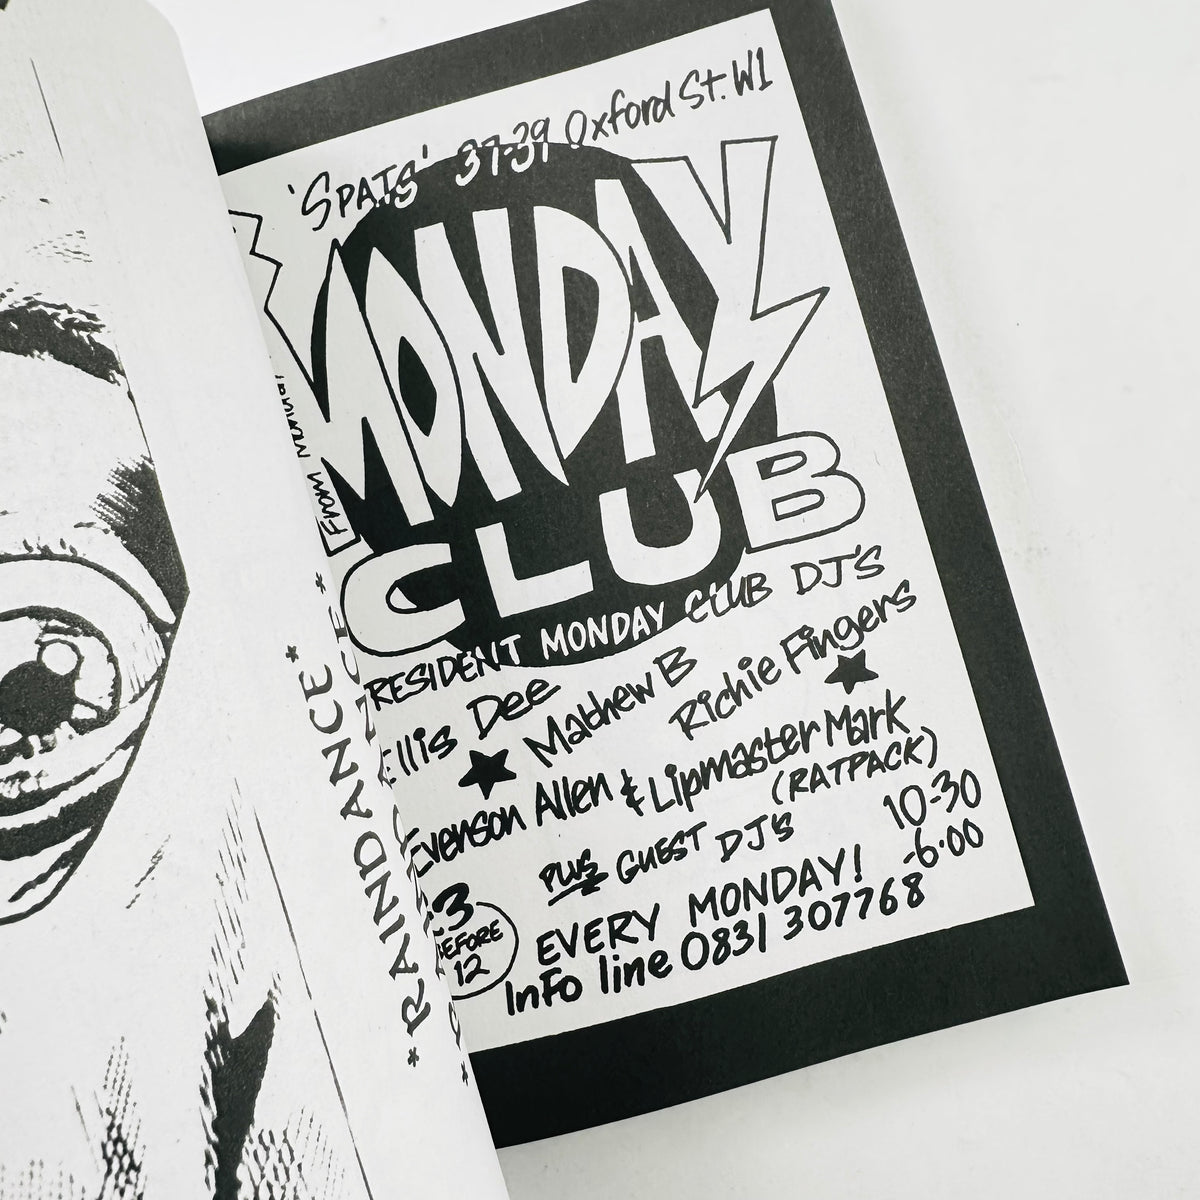 'SPATS' 37-39 Oxford St. W1
MONDAY
CLUB
FROM
RESIDENT MONDAY CLUB DJ'S
Ellis Dee
★ Mathew B
Richie Fingers ★
Evenson Allen & Lipmaster Mark
(RATPACK)
PLUS GUEST DJ'S
10-30
-6.00
3
BEFORE
12
EVERY MONDAY!
InFo line 0831 307768
*RAINDANCE*